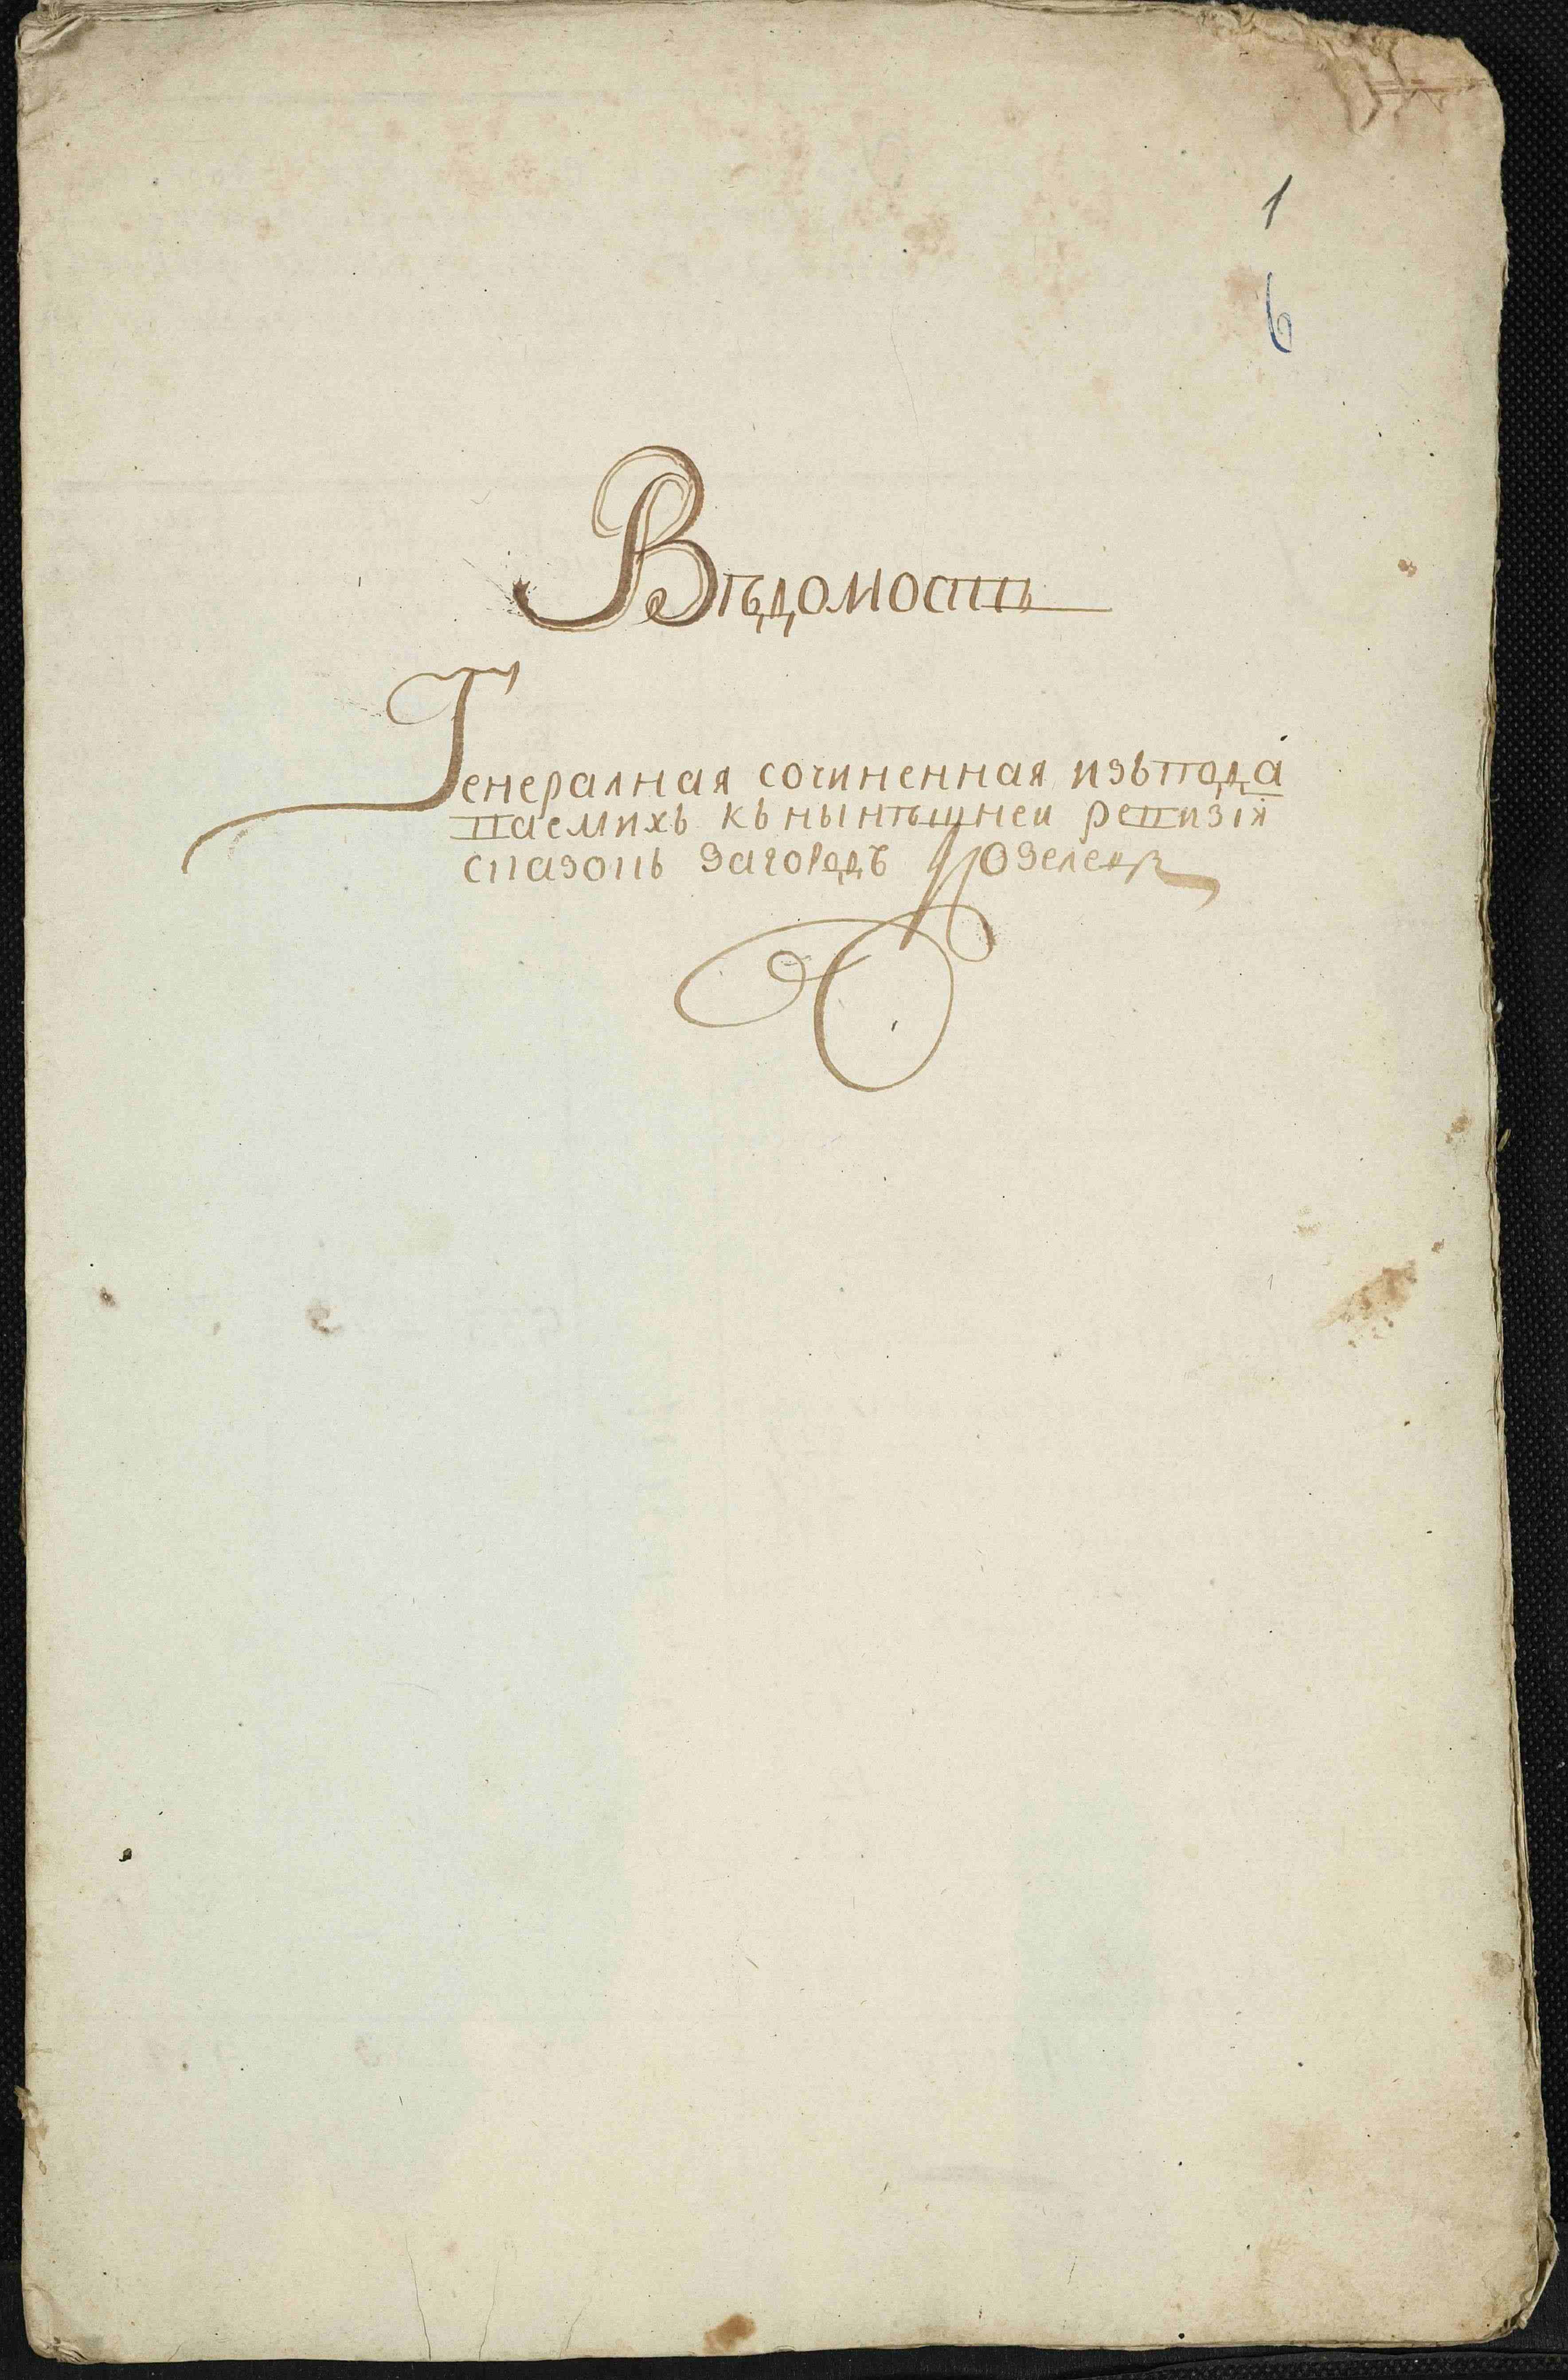 1
6
Вѣдомость
Генералная сочиненная изъ пода
ваемихъ къ нынѣшнеи ревизіи
сказокъ за городъ Козелец